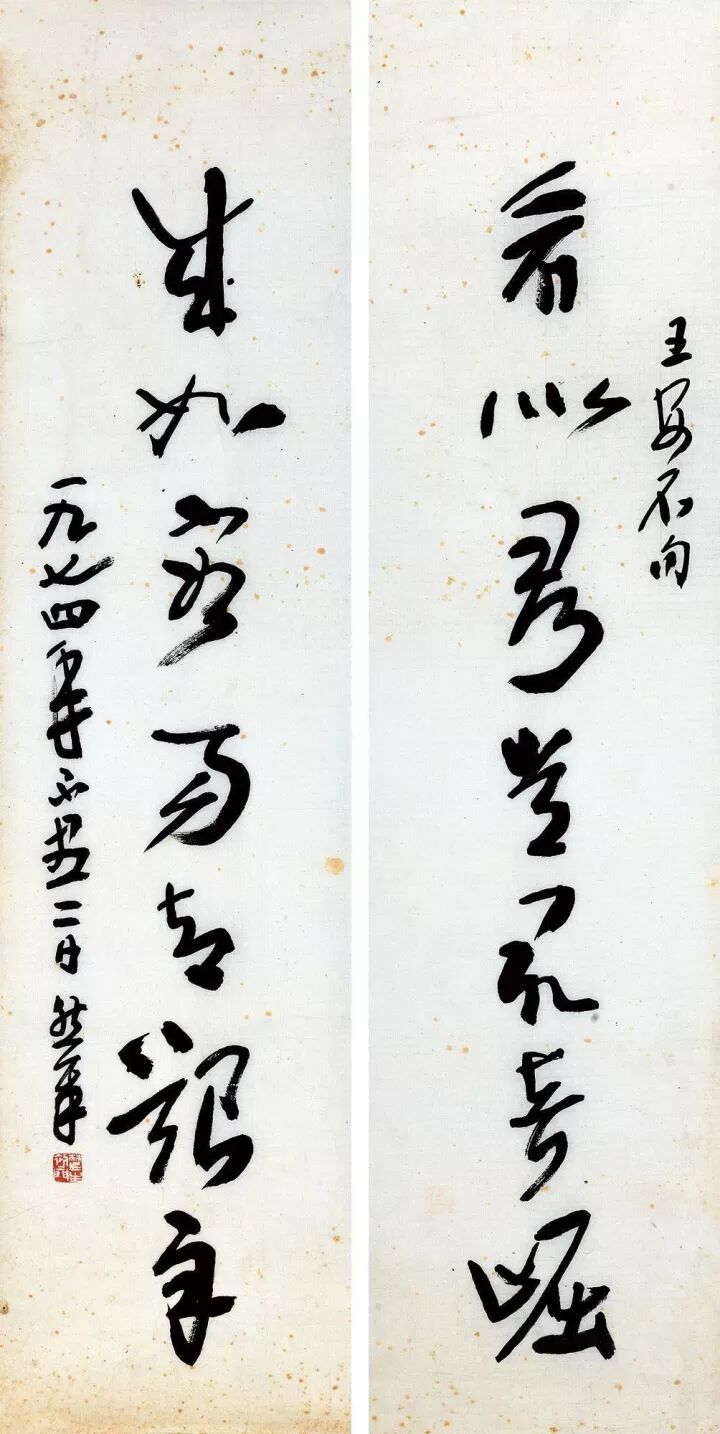 王安石句
看似尋常最奇崛
成如容易却艱辛
一九七四年不盡二日